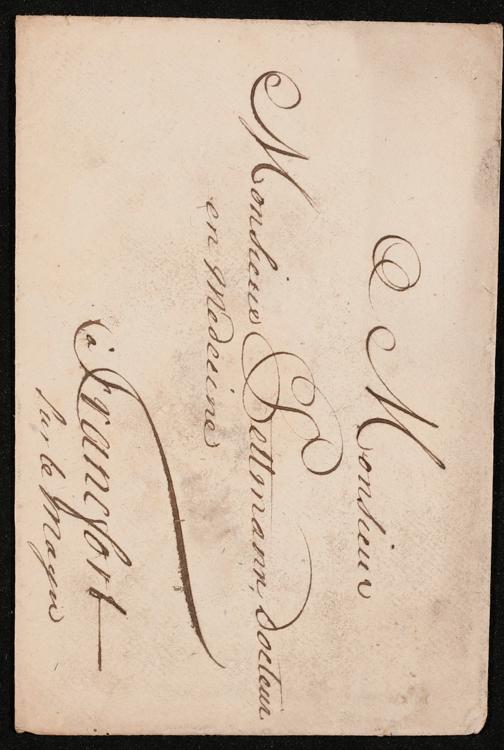 A Monsieur
Monsieur Bettmann, Docteur
en Medecine
à Francfort
Sur le Mayn